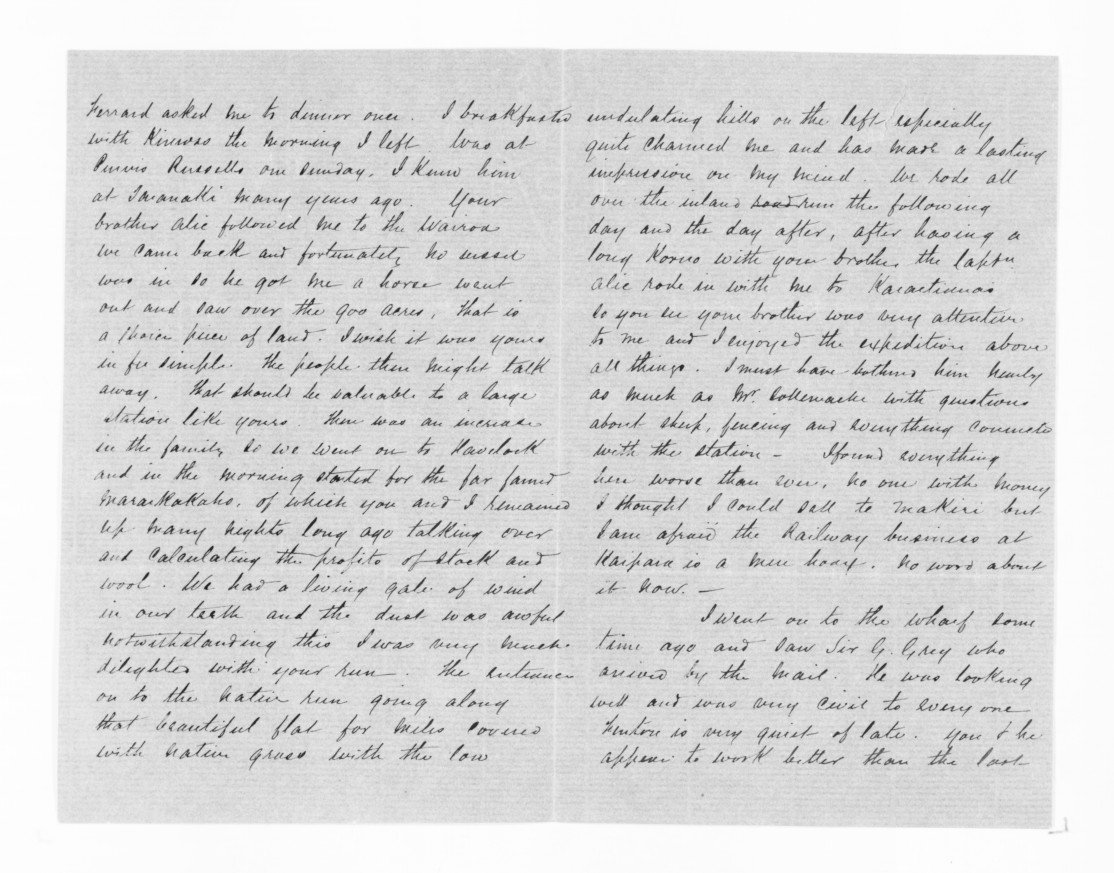 Ferrard asked me to dinner once. I breakfasted
with Kinross the morning I left. Was at
Purvis Russells on Sunday, I knew him
at Taranaki many years ago. Your
brother Alic followed me to the Wairoa
we came back and fortunately no vessel
was in so he got me a horse went
out and saw over the 900 acres, that is
a choice piece of land. I wish it was yours
in fee simple. The people then might talk
away. That should be valuable to a large
station like yours. There was an increase
in the family so we went on to Havelock
and in the morning started for the far famed
Maraekakaho, of which you and I remained
up many nights long ago talking over
and calculating the profits of stock and
wool. We had a living gale of wind
in our teeth and the dust was awful
notwithstanding this I was very much
delighted with your run. The entrance
on to the native run going along
that beautiful flat for miles covered
with native grass with the low
undulating hills on the left especially
quite charmed me and has made a lasting
impression on my mind. We rode all
over the inland run the following
day and the day after, after having a
long Korero with your brother the Captn
Alic rode in with me to
so you see your brother was very attentive
to me and I enjoyed the expedition above
all things. I must have bothered him nearly
as much as Mr. with questions
about sheep, fencing and everything connected
with the station - I found everything
here worse than ever, no one with money
I thought I could sell to Makiri but
I am afraid the Railway business at
Kaipara is a mere hoax. No word about
it now. -
I went on to the wharf some
time ago and saw Sir G. Grey who
arrived by the Mail. He was looking
well and was very civil to every one
Fenton is very quiet of late. You & he
appear to work better than the last